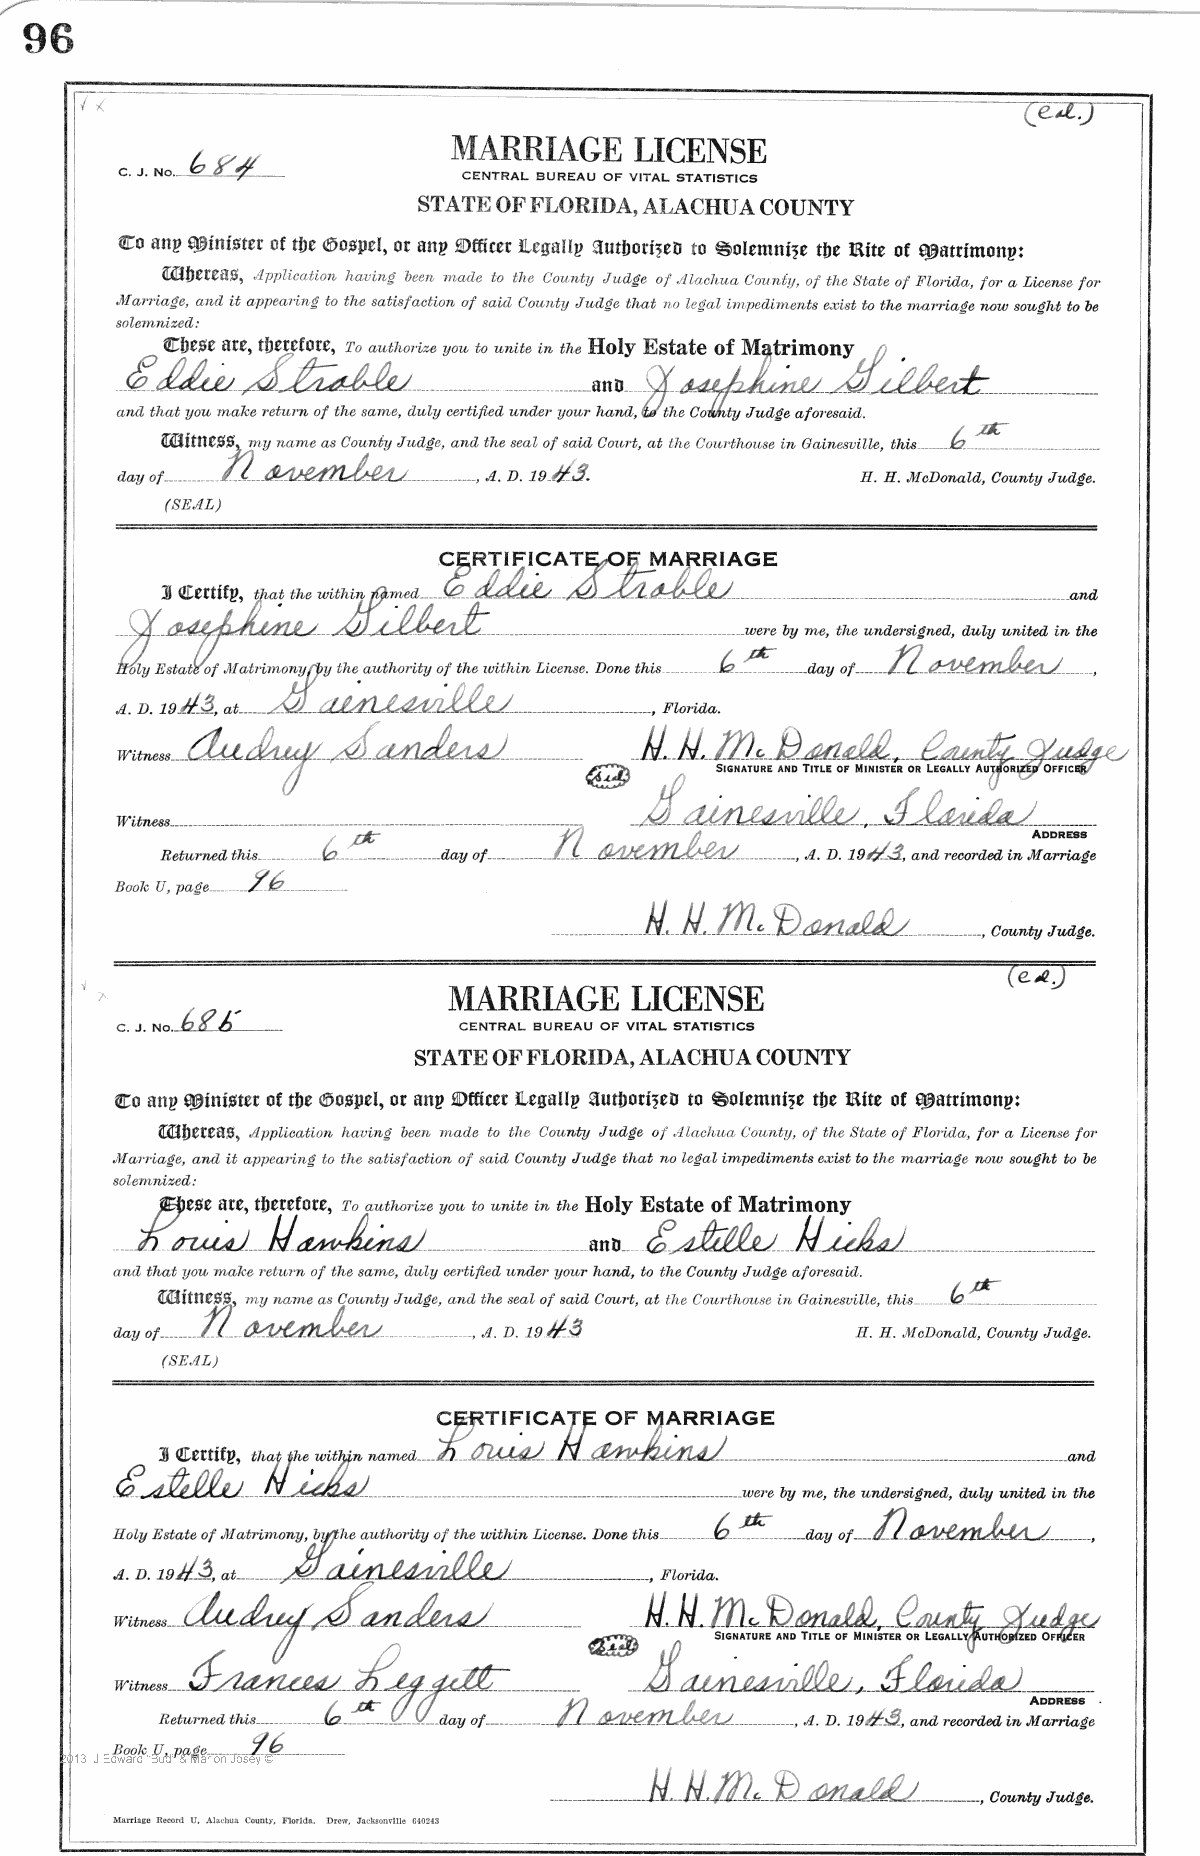 96
(Col.)
MARRIAGE LICENSE
C. J. No. 684
CENTRAL BUREAU OF VITAL STATISTICS
STATE OF FLORIDA, ALACHUA COUNTY
To any Minister of the Gospel, or any Officer Legally Authorized to Solemnize the Rite of Matrimony:
Whereas, Application having been made to the County Judge of Alachua County, of the State of Florida, for a License for
Marriage, and it appearing to the satisfaction of said County Judge that no legal impediments exist to the marriage now sought to be
solemnized:
These are, therefore, To authorize you to unite in the Holy Estate of Matrimony
Eddie Stroble and Josephine Gilbert
and that you make return of the same, duly certified under your hand, to the County Judge aforesaid.
Witness, my name as County Judge, and the seal of said Court, at the Courthouse in Gainesville, this 6th
day of November, A. D. 1943. H. H. McDonald, County Judge.
(SEAL)
CERTIFICATE OF MARRIAGE
I Certify, that the within named Eddie Stroble and
Josephine Gilbert were by me, the undersigned, duly united in the
Holy Estate of Matrimony, by the authority of the within License. Done this 6th day of November,
A. D. 1943, at Gainesville, Florida.
Witness Audrey Sanders H. H. McDonald, County Judge
SIGNATURE AND TITLE OF MINISTER OR LEGALLY AUTHORIZED OFFICER
Witness Gainesville, Florida
ADDRESS
Returned this 6th day of November, A. D. 1943, and recorded in Marriage
Book U, page 96
H. H. McDonald, County Judge.
(Col.)
MARRIAGE LICENSE
C. J. No. 685
CENTRAL BUREAU OF VITAL STATISTICS
STATE OF FLORIDA, ALACHUA COUNTY
To any Minister of the Gospel, or any Officer Legally Authorized to Solemnize the Rite of Matrimony:
Whereas, Application having been made to the County Judge of Alachua County, of the State of Florida, for a License for
Marriage, and it appearing to the satisfaction of said County Judge that no legal impediments exist to the marriage now sought to be
solemnized:
These are, therefore, To authorize you to unite in the Holy Estate of Matrimony
Louis Hawkins and Estelle Hicks
and that you make return of the same, duly certified under your hand, to the County Judge aforesaid.
Witness, my name as County Judge, and the seal of said Court, at the Courthouse in Gainesville, this 6th
day of November, A. D. 1943 H. H. McDonald, County Judge.
(SEAL)
CERTIFICATE OF MARRIAGE
I Certify, that the within named Louis Hawkins and
Estelle Hicks were by me, the undersigned, duly united in the
Holy Estate of Matrimony, by the authority of the within License. Done this 6th day of November,
A. D. 1943, at Gainesville, Florida.
Witness Audrey Sanders H. H. McDonald, County Judge
Seal SIGNATURE AND TITLE OF MINISTER OR LEGALLY AUTHORIZED OFFICER
Witness Frances Leggett Gainesville, Florida
ADDRESS
Returned this 6th day of November, A. D. 1943, and recorded in Marriage
Book U, page 96
2013 J Edward "Bud" & Marion Josey ©
H. H. McDonald, County Judge.
Marriage Record U, Alachua County, Florida. Drew, Jacksonville 640243